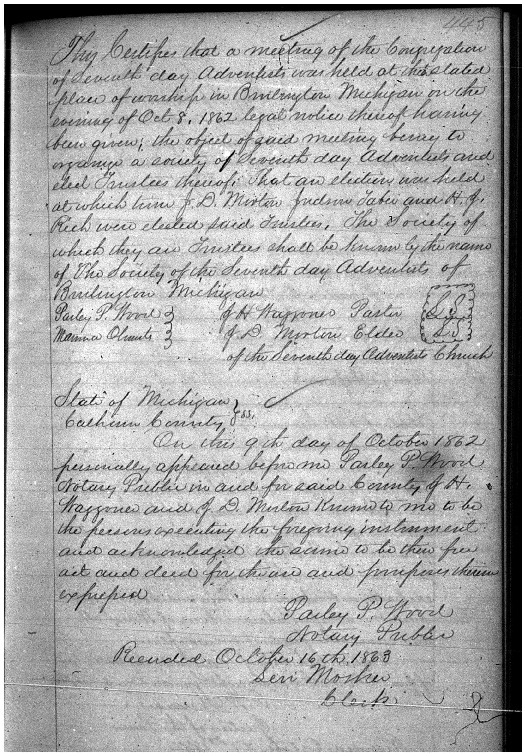 445
This Certifies that a meeting of the Congregation
of Seventh day Adventists was held at the stated
place of worship in Burlington Michigan on the
evening of Oct 8, 1862 legal notice thereof having
been given, the object of said meeting being to
organize a society of Seventh day Adventists and
elect Trustees thereof; That an election was held
at which time J. D. Morton Judson Taber and H. J.
Rich were elected said Trustees. The Society of
which they are Trustees shall be known by the name
of The Society of the Seventh day Adventists of
Burlington Michigan
Parley P. Wood } J H Waggoner Pastor L.S.
} J. D. Morton Elder L.S.
of the Seventh day Adventists Church
State of Michigan }
Calhoun County } ss.
On this 9th day of October 1862
personally appeared before me Parley P. Wood
Notary Public in and for said County J. H.
Waggoner and J. D. Morton Known to me to be
the persons executing the foregoing instrument
and acknowledged the same to be their free
act and deed for the use and purposes therein
expressed
Parley P. Wood
Notary Public
Recorded October 16th, 1863
Levi Mosher
Clerk